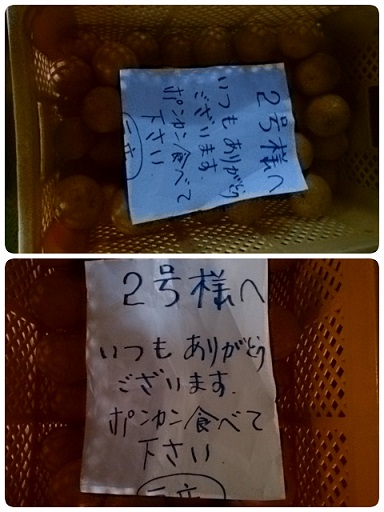 2号様へ
いつもありがとう
ございます.
ポンカン食べて
下さい
2号様へ
いつもありがとう
ございます.
ポンカン食べて
下さい